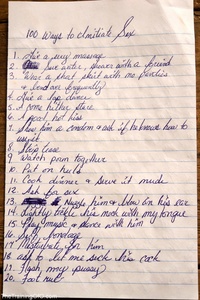 100 Ways to Initiate Sex
1. Give a sexy massage
2. sex writer, shower with a friend
3. Wear a short skirt with no panties
& bend over frequently
4. Give a lap dance
5. Come hither stare
6. A great hot kiss
7. Show him a condom & ask if he knows how to
use it
8. Strip tease
9. Watch porn together
10. Put on heels
11. Cook dinner & serve it nude
12. Ask for sex
13. Nuzzle him & blow in his ear
14. Lightly tickle his neck with my tongue
15. Play music & dance with him
16. Soft bondage
17. Masturbate for him
18. ask to let me suck his cock
19. Flash my pussy
20. Foot rub